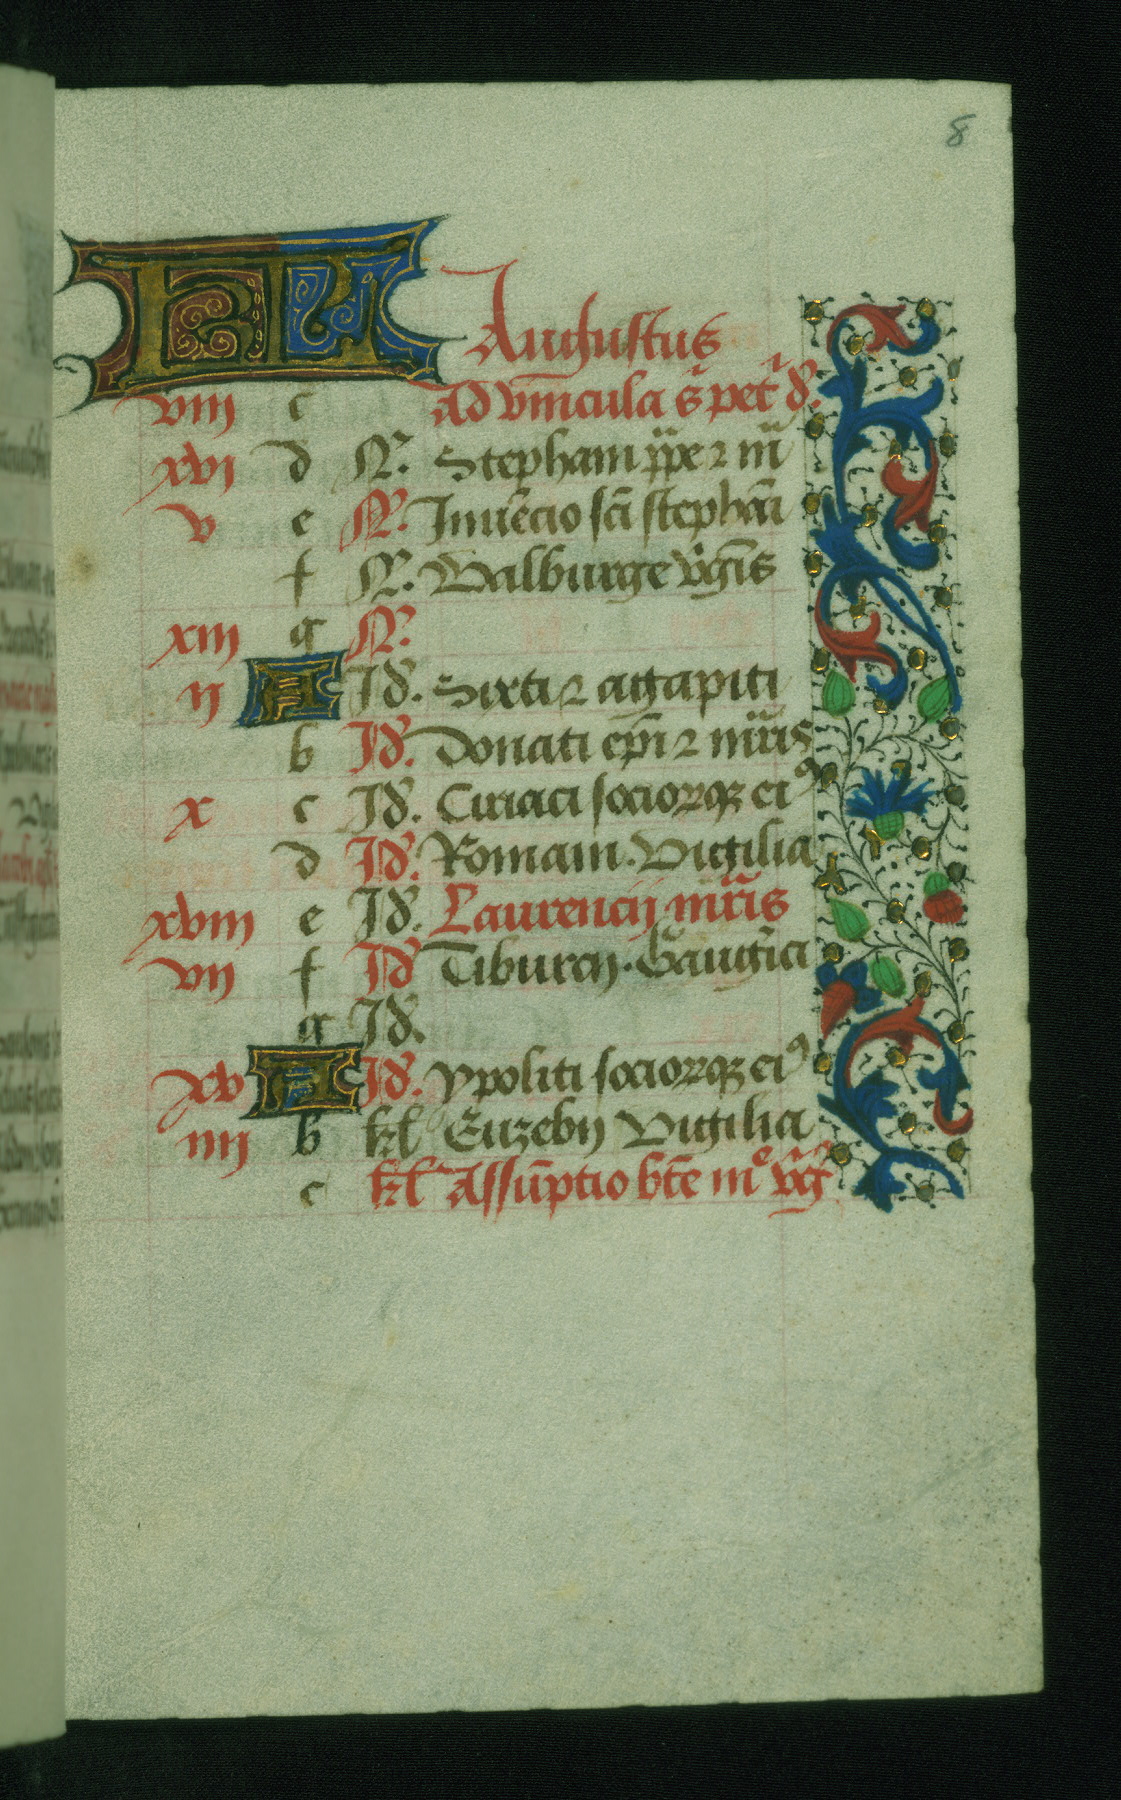 8
KL Augustus
viii c Ad vincula s̄ pet̄ d̄.
xvi d N̄. Stephani p̄pe ⁊ m̄
v e N̄. Inuēcio sc̄i stephāi
f N̄. Walburge v̄gīs
xiii g N̄.
ii A Id̄. Sixti ⁊ agapiti
b Id̄. Donati ep̄i ⁊ mr̄is
x c Id̄. Ciriaci sociorqꝫ eiꝰ
d Id̄. Romani. Vigilia
xviii e Id̄. Laurencij mr̄is
vii f Id̄ Tiburcij. Gaugīci
g Id̄.
xv A Id̄. ypoliti sociorqꝫ eiꝰ
iiii b kl̄ Euzebij Vigilia
c kl̄ Assūptio bt̄e mͤ v̄ḡ